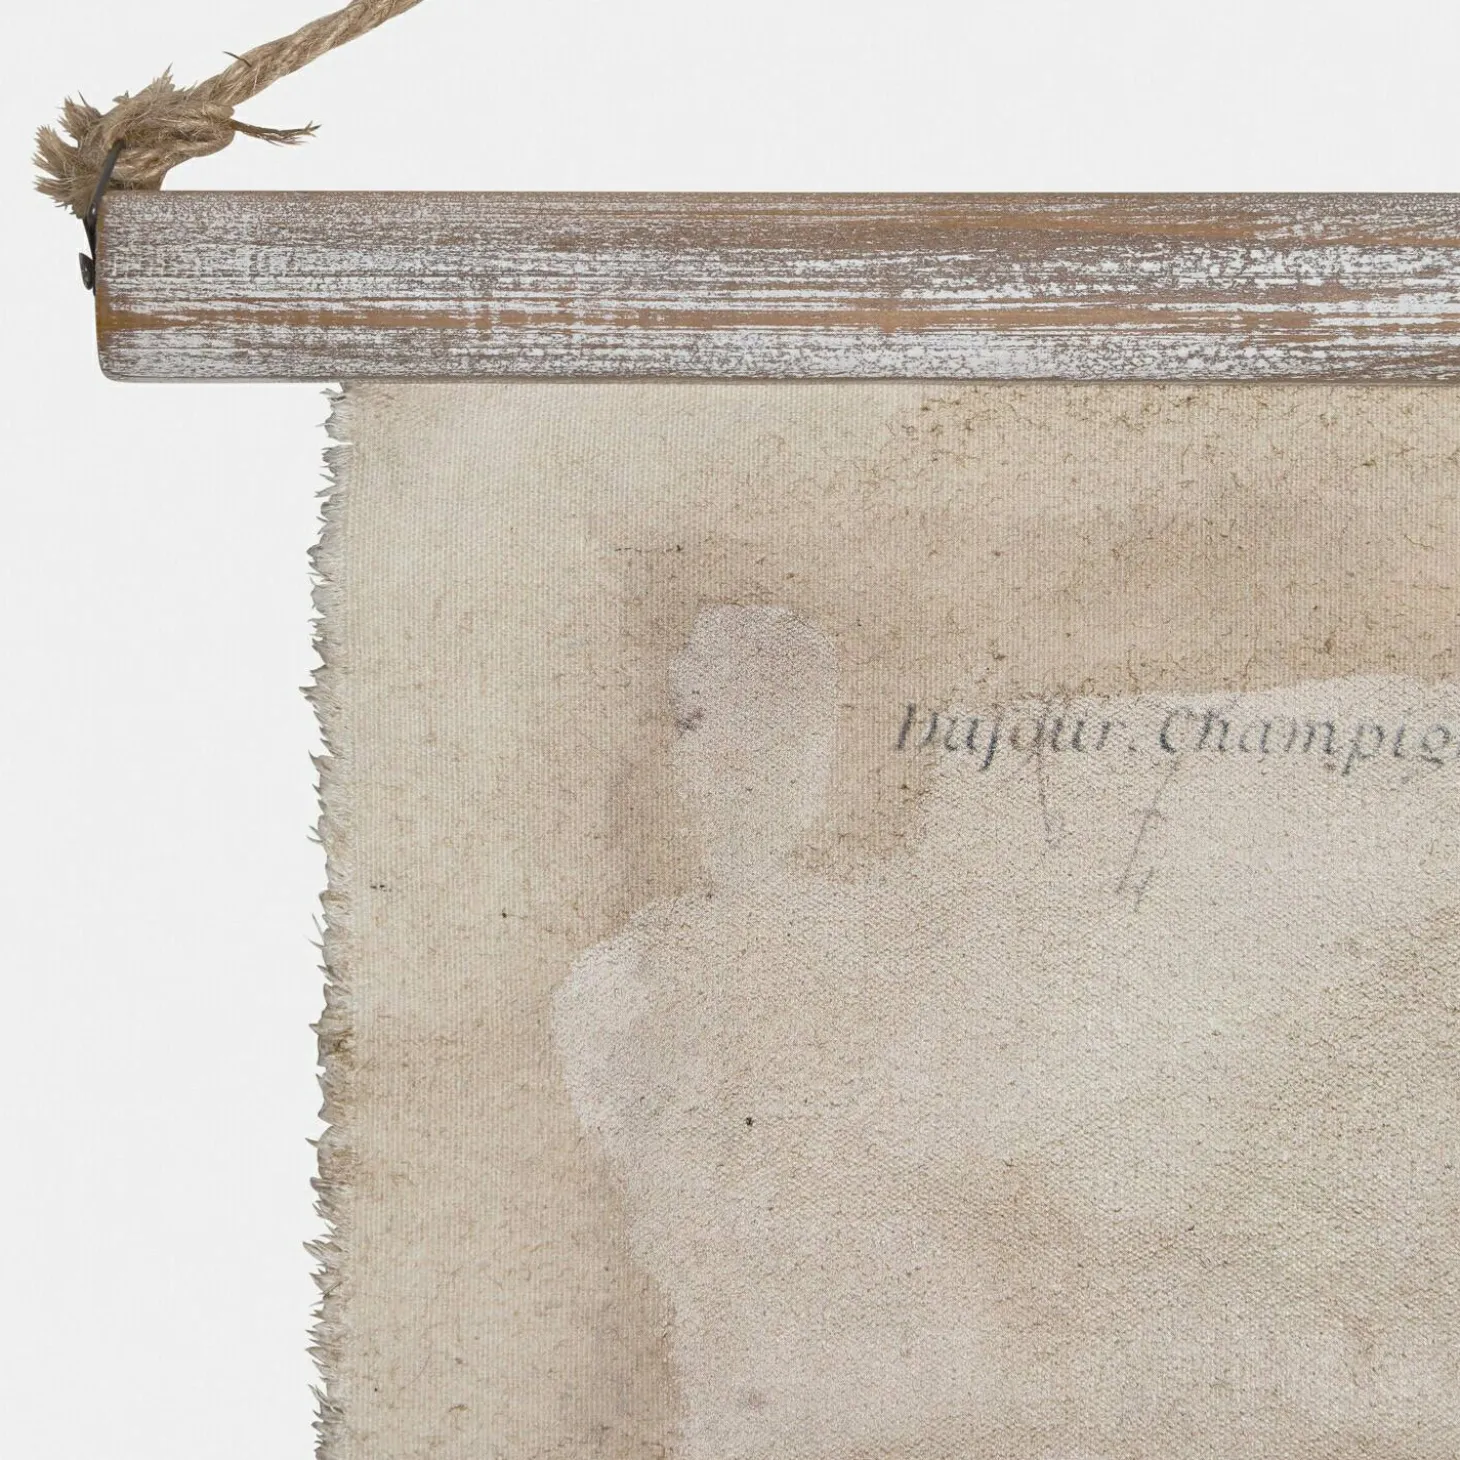 Dujour. Champig